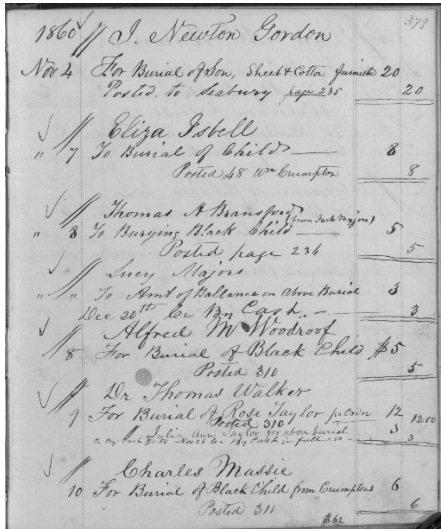 379
1860 J. Newton Gordon
Nov 4 For Burial of Son, Sheet & Cotton furnished 20
Posted to Seabury page 235 20
Eliza Isbell
" 7 To Burial of Child 8
Posted 48 Wm Crumpton 8
Thomas A Bransford
(from Jack Majors)
" 8 To Burying Black Child 5
Posted page 234 5
Lucy Majors
" " To Amt of Ballance on Above Burial 3
Dec 20th Cr By Cash. 3
Alfred M Woodroof
8 For Burial of Black Child $5
Posted 310 5
Dr Thomas Walker
9 For Burial of Rose Taylor 12
Posted 310 12.00
Julia Ann Taylor for above burial 3
Nov 26 Cr By Cash in full 3
Charles Massie
10 For Burial of Black Child from Crumptons 6
Posted 311 6
$62